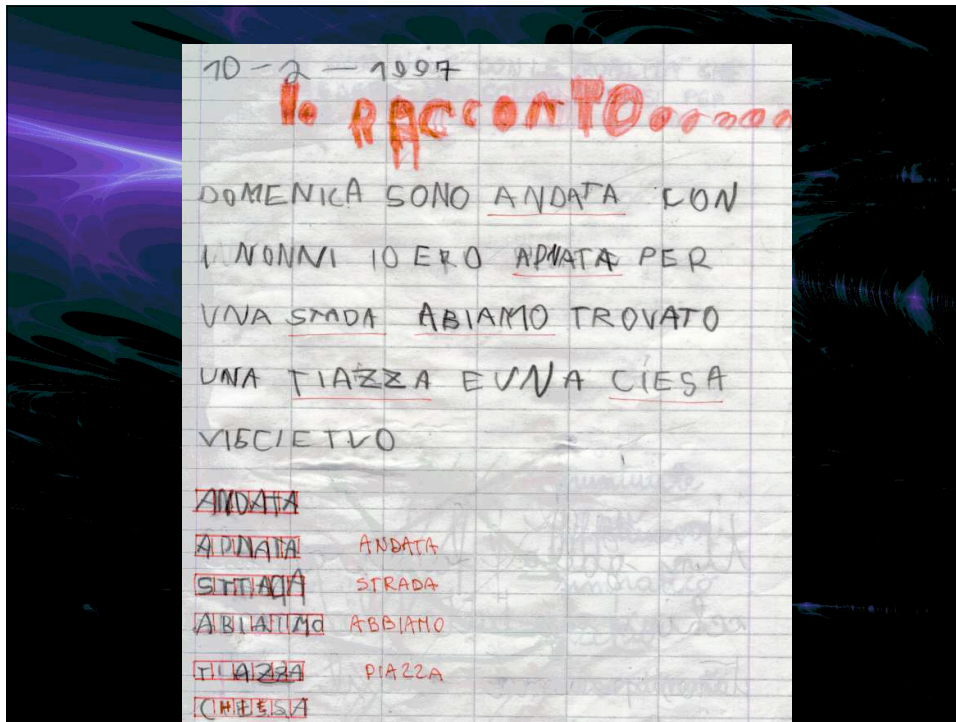 10-2-1997
Io RACCONTO.......
DOMENICA SONO ANDATA CON
I NONNI IO ERO APNATA PER
UNA STADA ABIAMO TROVATO
UNA TIAZZA E UNA CIESA
ANDATA
APNATA ANDATA
STRADA
ABIAIMO ABBIAMO
TIAZZA PIAZZA
CHIESA